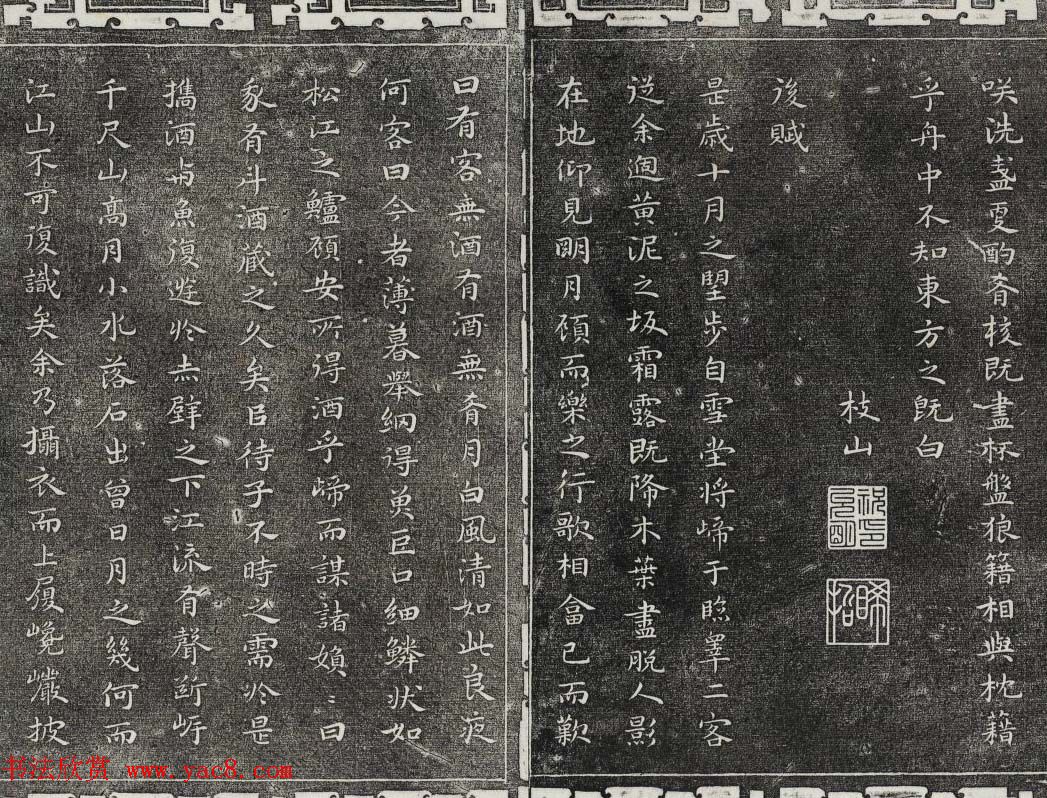 咲洗盞更酌肴核既盡杯盤狼籍相與枕藉
乎舟中不知東方之既白
枝山
後賦
是歲十月之望步自雪堂將歸于臨皋二客
從余過黃泥之坂霜露既降木葉盡脱人影
在地仰見明月顧而樂之行歌相畣已而歎
曰有客無酒有酒無肴月白風清如此良夜
何客曰今者薄暮舉網得魚巨口細鱗状如
松江之鱸顧安所得酒乎歸而謀諸婦：曰
我有斗酒藏之久矣㠯待子不時之需於是
攜酒與魚復遊於赤壁之下江流有聲断岸
千尺山高月小水落石出曾日月之幾何而
江山不可復識矣余乃攝衣而上履巉巖披
书法欣赏 www.yac8.com